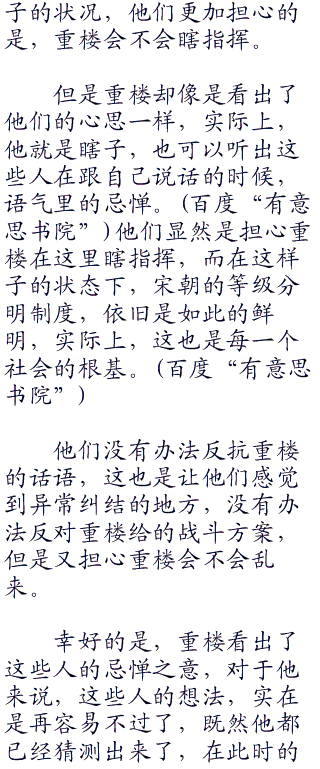 子的状况，他们更加担心的
是，重楼会不会瞎指挥。
但是重楼却像是看出了
他们的心思一样，实际上，
他就是瞎子，也可以听出这
些人在跟自己说话的时候，
语气里的忌惮。(百度“有意
思书院”)他们显然是担心重
楼在这里瞎指挥，而在这样
子的状态下，宋朝的等级分
明制度，依旧是如此的鲜
明，实际上，这也是每一个
社会的根基。(百度“有意思
书院”)
他们没有办法反抗重楼
的话语，这也是让他们感觉
到异常纠结的地方，没有办
法反对重楼给的战斗方案，
但是又担心重楼会不会乱
来。
幸好的是，重楼看出了
这些人的忌惮之意，对于他
来说，这些人的想法，实在
是再容易不过了，既然他都
已经猜测出来了，在此时的